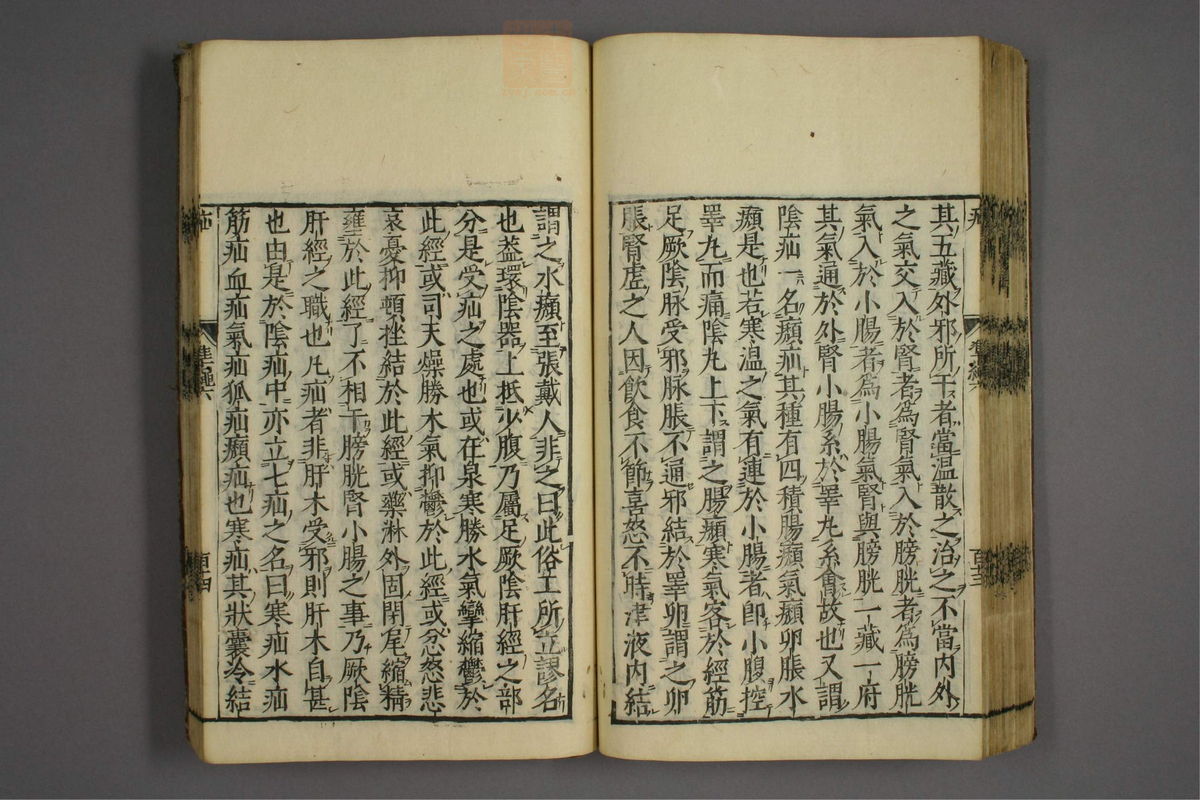 其五藏外邪所干者當温散之治之不當内外
之氣交入於腎者爲腎氣入於膀胱者爲膀胱
氣入於小腸者爲小腸氣腎與膀胱一藏一府
其氣通於外腎小腸系於睪丸系會故也又謂
陰疝一名㿗疝其種有四積腸㿗氣㿗卵脹水
㿗是也若寒温之氣有連於小腸者卽小腹控
睪丸而痛陰丸上下謂之腸㿗寒氣客於經筋
足厥陰脉受邪脉脹不通邪結於睪卵謂之卵
脹腎虚之人因飲食不節喜怒不時津液内結
謂之水㿗至張戴人非之曰此俗工所立謬名
也盖環陰器上抵少腹乃屬足厥陰肝經之部
分是受疝之處也或在泉寒勝水氣攣縮鬱於
此經或司天燥勝木氣抑鬱於此經或忿怒悲
哀憂抑頓挫結於此經或藥淋外固閉尾縮精
壅於此經了不相干膀胱腎小腸之事乃厥陰
肝經之職也凡疝者非肝木受邪則肝木自甚
也由是於陰疝中亦立七疝之名曰寒疝水疝
筋疝血疝氣疝狐疝㿗疝也寒疝其狀囊冷結
疝
百十四